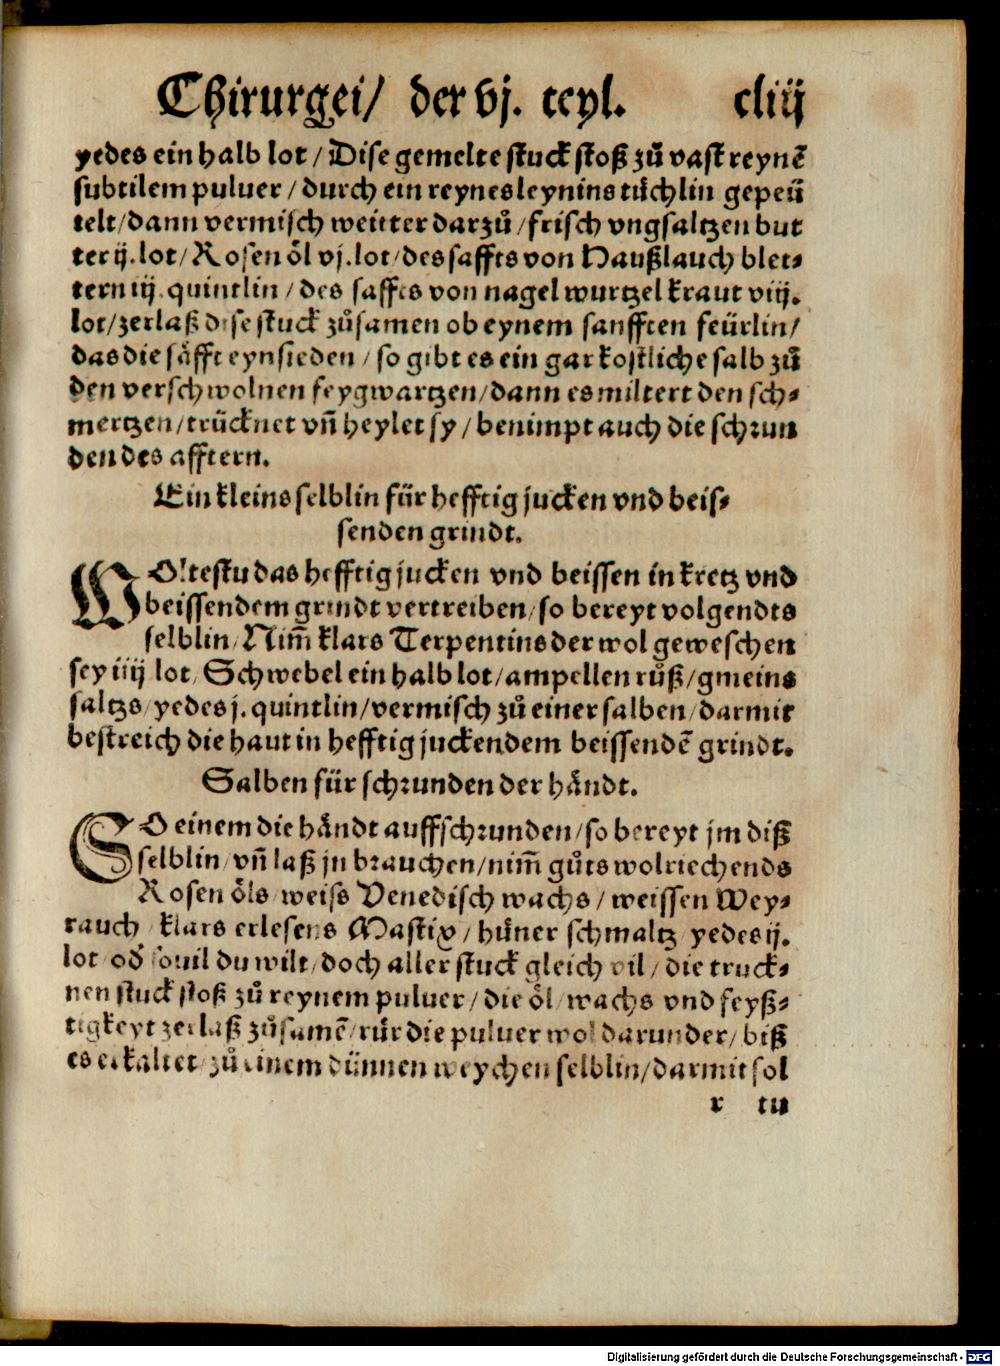 Chirurgei/ der vj. teyl. cliij
yedes ein halb lot / Dise gemelte stuck stoß zů vast reynē
subtilem puluer / durch ein reynes leynins tüchlin gepeü
telt / dann vermisch weitter darzů / frisch vngsaltzen but
ter ij. lot / Rosen öl vj. lot / des saffts von Haußlauch blet-
tern iij. quintlin / des saffts von nagel wurtzel kraut viij.
lot / zerlaß dise stuck zůsamen ob eynem sanfften feürlin /
das die säfft eynsieden / so gibt es ein gar kostliche salb zů
den verschwolnen feygwartzen / dann es miltert den sch-
mertzen / trücknet vn̄ heylet sy / benimpt auch die schrun
den des afftern.
Ein kleins selblin für hefftig jucken vnd beis-
senden grindt.
WOltestu das hefftig jucken vnd beissen in kretz vnd
beissendem grindt vertreiben / so bereyt volgendts
selblin / Nim̄ klars Terpentins der wol geweschen
sey iiij lot / Schwebel ein halb lot / ampellen růß / gmeins
saltzs / yedes j. quintlin / vermisch zů einer salben / darmit
bestreich die haut in hefftig juckendem beissendē grindt.
Salben für schrunden der händt.
SO einem die händt auffschrunden / so bereyt jm diß
selblin / vn̄ laß jn brauchen / nim̄ gůts wolriechends
Rosen öls / weiss Venedisch wachs / weissen Wey-
rauch / klars erlesens Mastix / hüner schmaltz yedes ij.
lot od̄ souil du wilt / doch aller stuck gleich vil / die truck-
nen stuck stoß zů reynem puluer / die öl / wachs vnd feyß-
tigkeyt zerlaß zůsamē / rür die puluer wol darunder / biß
es erkaltet / zů einem dünnen weychen selblin / darmit sol
r tu
Digitalisierung gefördert durch die Deutsche Forschungsgemeinschaft - DFG